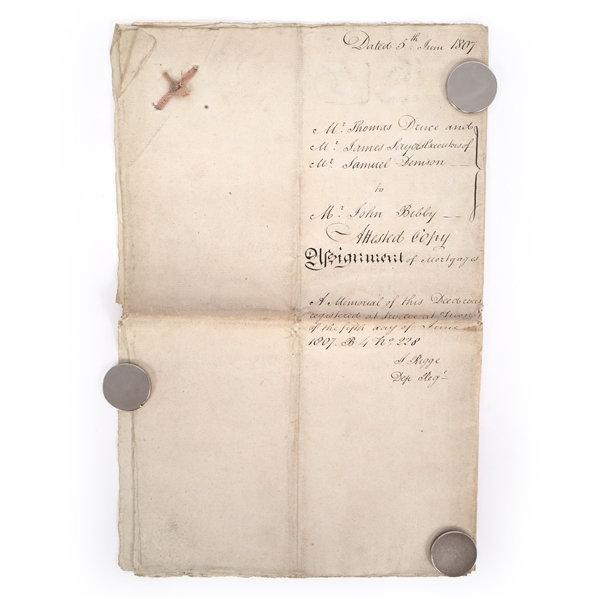 Dated 5th June 1807
Mr. Thomas Druce and
Mr. James Sayer Executors of
Mr. Samuel Denison
to
Mr. John Bibby
Attested Copy
Assignment of Mortgages
A Memorial of this Deed was
registered at twelve at Noon
of the fifth day of June
1807 B 4 No. 228
J. Rigge
Dep Regr.